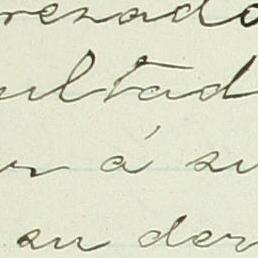 resado
ultad
r á su
su der